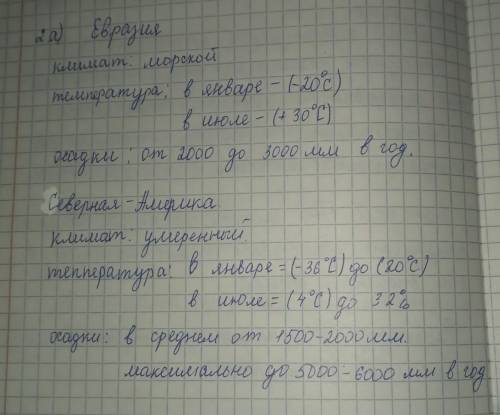 2а) Евразия
климат: морской
температура: в январе - (-20°C)
в июле - (+30°C)
осадки: от 2000 до 3000 мм в год.
Северная - Америка
климат: умеренный.
температура: в январе = (-36°C) до (20°C)
в июле = (4°C) до 32%
осадки: в среднем от 1500-2000 мм.
максимально до 5000-6000 мм в год.